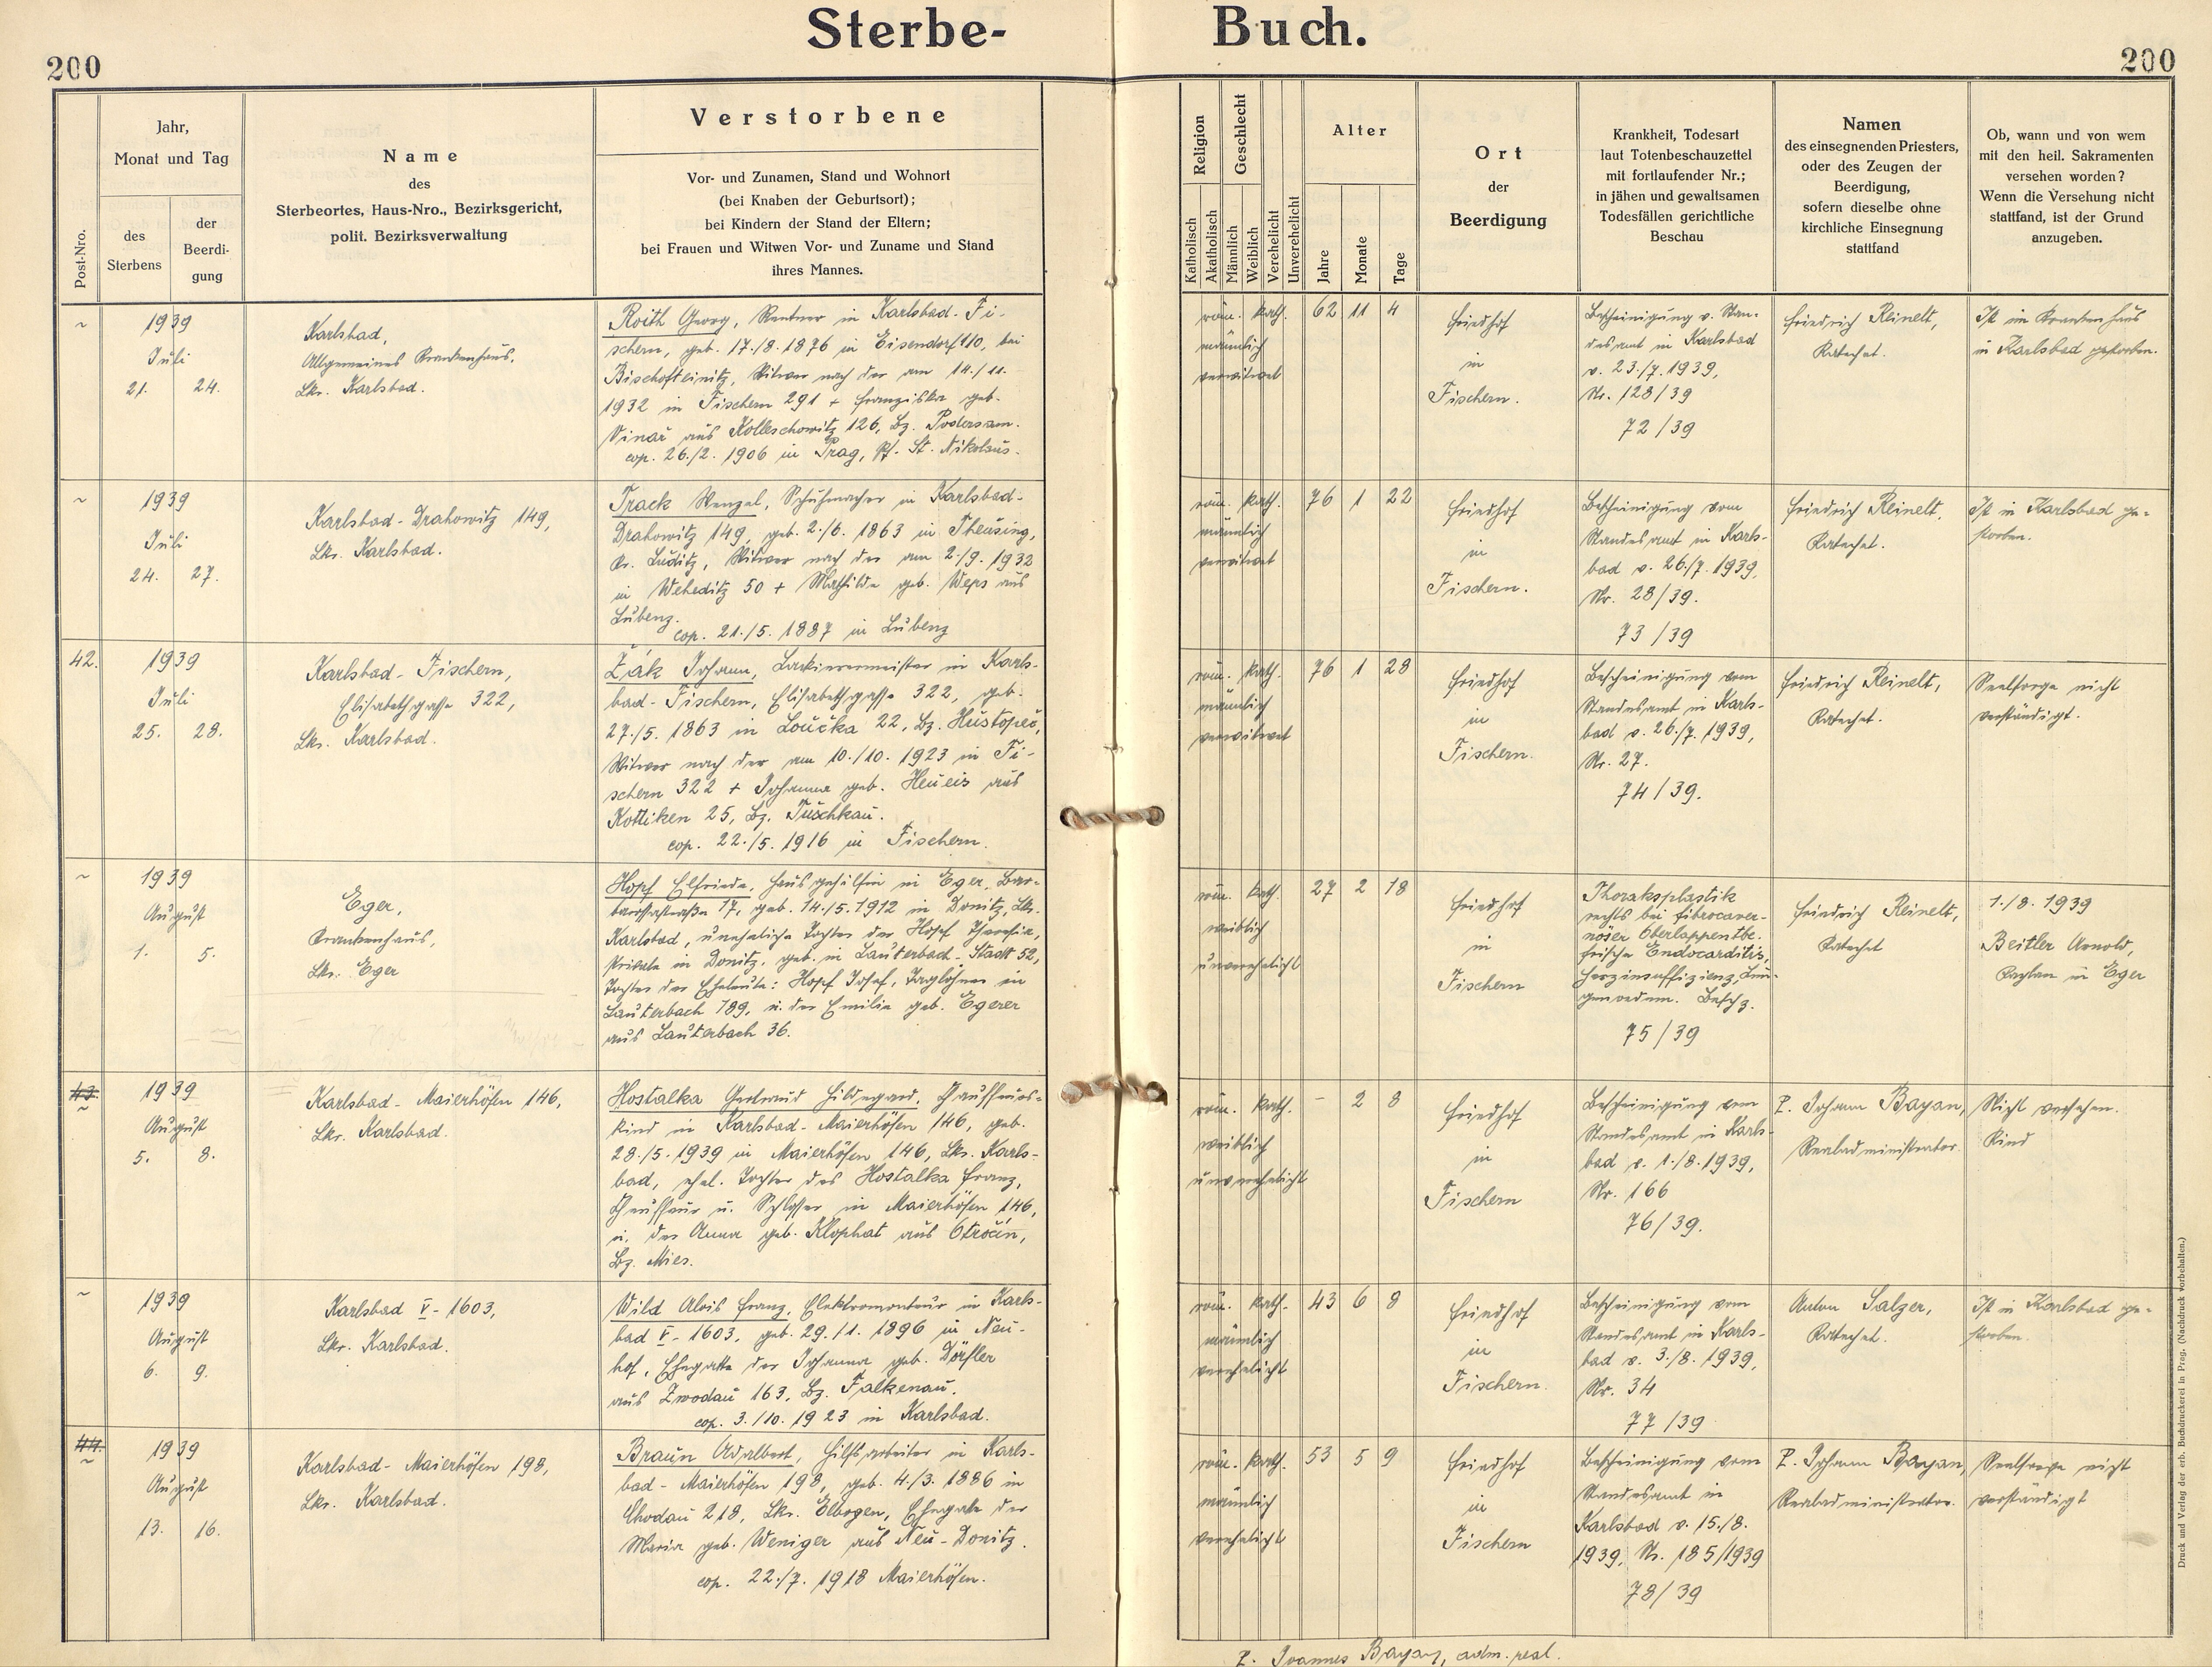 Sterbe-
Buch.
200
200
Post-Nro.
Jahr,
Monat und Tag
des
Sterbens
der
Beerdi-
gung
Name
des
Sterbeortes, Haus-Nro., Bezirksgericht,
polit. Bezirksverwaltung
Verstorbene
Vor- und Zunamen, Stand und Wohnort
(bei Knaben der Geburtsort);
bei Kindern der Stand der Eltern;
bei Frauen und Witwen Vor- und Zuname und Stand
ihres Mannes.
Religion
Katholisch
Akatholisch
Geschlecht
Männlich
Weiblich
Verehelicht
Unverehelicht
Alter
Jahre
Monate
Tage
Ort
der
Beerdigung
Krankheit, Todesart
laut Totenbeschauzettel
mit fortlaufender Nr.;
in jähen und gewaltsamen
Todesfällen gerichtliche
Beschau
Namen
des einsegnenden Priesters,
oder des Zeugen der
Beerdigung,
sofern dieselbe ohne
kirchliche Einsegnung
stattfand
Ob, wann und von wem
mit den heil. Sakramenten
versehen worden?
Wenn die Versehung nicht
stattfand, ist der Grund
anzugeben.
~
1939
Juli
21. 24.
Karlsbad,
Allgemeines Krankenhaus,
Lkr. Karlsbad.
Roith Georg, Rentner in Karlsbad-Fi-
schern, geb. 17./8. 1876 in Eisendorf 110, bei
Bischofteinitz, Witwer nach der am 14./11.
1932 in Fischern 291 + Franziska geb.
Vinař aus Kolleschowitz 126, Bz. Podersam.
cop. 26./2. 1906 in Prag, Pf. St. Nikolaus.
röm. kath.
männlich
verwitwet
62 11 4
Friedhof
in
Fischern.
Bescheinigung v. Stan-
desamt in Karlsbad
v. 23./7. 1939,
Nr. 128/39
72/39
Friedrich Reinelt,
Katechet.
Ist im Krankenhaus
in Karlsbad gestorben.
~
1939
Juli
24. 27.
Karlsbad-Drahowitz 149,
Lkr. Karlsbad.
Track Wenzel, Schuhmacher in Karlsbad-
Drahowitz 149, geb. 2./6. 1863 in Theusing,
Kr. Luditz, Witwer nach der am 2./9. 1932
in Weheditz 50 + Mathilde geb. Weps aus
Lubenz.
cop. 21./5. 1887 in Lubenz
röm. kath.
männlich
verwitwet
76 1 22
Friedhof
in
Fischern.
Bescheinigung vom
Standesamt in Karls-
bad v. 26./7. 1939,
Nr. 28/39.
73/39
Friedrich Reinelt,
Katechet.
Ist in Karlsbad ge-
storben.
42.
1939
Juli
25. 28.
Karlsbad-Fischern,
Elisabethgasse 322,
Lkr. Karlsbad.
Žák Johann, Lackierermeister in Karls-
bad-Fischern, Elisabethgasse 322, geb.
27./5. 1863 in Loučka 22, Bz. Hustopeč,
Witwer nach der am 10./10. 1923 in Fi-
schern 322 + Johanna geb. Heueis aus
Kottiken 25, Bz. Tuschkau.
cop. 22./5. 1916 in Fischern.
röm. kath.
männlich
verwitwet
76 1 28
Friedhof
in
Fischern.
Bescheinigung vom
Standesamt in Karls-
bad v. 26./7. 1939,
Nr. 27.
74/39.
Friedrich Reinelt,
Katechet.
Seelsorge nicht
verständigt.
~
1939
August
1. 5.
Eger,
Krankenhaus,
Lkr. Eger
Hopf Elfriede, Hausgehilfin in Eger, Bar-
barossastraße 17, geb. 14./5. 1912 in Donitz, Lkr.
Karlsbad, uneheliche Tochter der Hopf Theresia,
Private in Donitz, geb. in Lauterbach-Stadt 52,
Tochter der Eheleute: Hopf Josef, Taglöhner in
Lauterbach 189, u. der Emilie geb. Egerer
aus Lauterbach 36.
röm. kath.
weiblich
unverehelicht
27 2 18
Friedhof
in
Fischern
Thoraksplastik
rechts bei fibrocaver-
nöser Oberlappentbc.
frische Endocarditis,
Herzinsuffizienz, Lun-
genoedem. Besch.
75/39
Friedrich Reinelt,
Katechet
1./8. 1939
Beitler Arnold,
Caplan in Eger
43.
~
1939
August
5. 8.
Karlsbad-Maierhöfen 146,
Lkr. Karlsbad.
Hostalka Gertraud Hildegard, Chauffeurs-
kind in Karlsbad-Maierhöfen 146, geb.
28./5. 1939 in Maierhöfen 146, Lkr. Karls-
bad, ehel. Tochter des Hostalka Franz,
Chauffeur u. Schlosser in Maierhöfen 146,
u. der Anna geb. Klophat aus Otročin,
Bz. Mies.
röm. kath.
weiblich
unverehelicht
- 2 8
Friedhof
in
Fischern
Bescheinigung vom
Standesamt in Karls-
bad v. 1./8. 1939,
Nr. 166
76/39.
P. Johann Bayan,
Realadministrator.
Nicht versehen.
Kind
~
1939
August
6. 9.
Karlsbad V-1603,
Lkr. Karlsbad.
Wild Alois Franz, Elektromonteur in Karls-
bad V-1603, geb. 29./1. 1896 in Neu-
hof, Ehegatte der Johanna geb. Dörfler
aus Zwodau 163, Bz. Falkenau.
cop. 3./10. 1923 in Karlsbad.
röm. kath.
männlich
verehelicht
43 6 8
Friedhof
in
Fischern.
Bescheinigung vom
Standesamt in Karls-
bad v. 3./8. 1939,
Nr. 34
77/39
Anton Salzer,
Katechet.
Ist in Karlsbad ge-
storben.
44.
~
1939
August
13. 16.
Karlsbad-Maierhöfen 198,
Lkr. Karlsbad.
Braun Adalbert, Hilfsarbeiter in Karls-
bad-Maierhöfen 198, geb. 4./3. 1886 in
Chodau 218, Lkr. Elbogen, Ehegatte der
Maria geb. Weniger aus Neu-Donitz.
cop. 22./7. 1918 Maierhöfen.
röm. kath.
männlich
verehelicht
53 5 9
Friedhof
in
Fischern
Bescheinigung vom
Standesamt in
Karlsbad v. 15./8.
1939, Nr. 185/1939
78/39
P. Johann Bayan,
Realadministrator.
Seelsorge nicht
verständigt
P. Joannes Bayan, adm. real.
Druck und Verlag der erb. Buchdruckerei in Prag. (Nachdruck vorbehalten.)